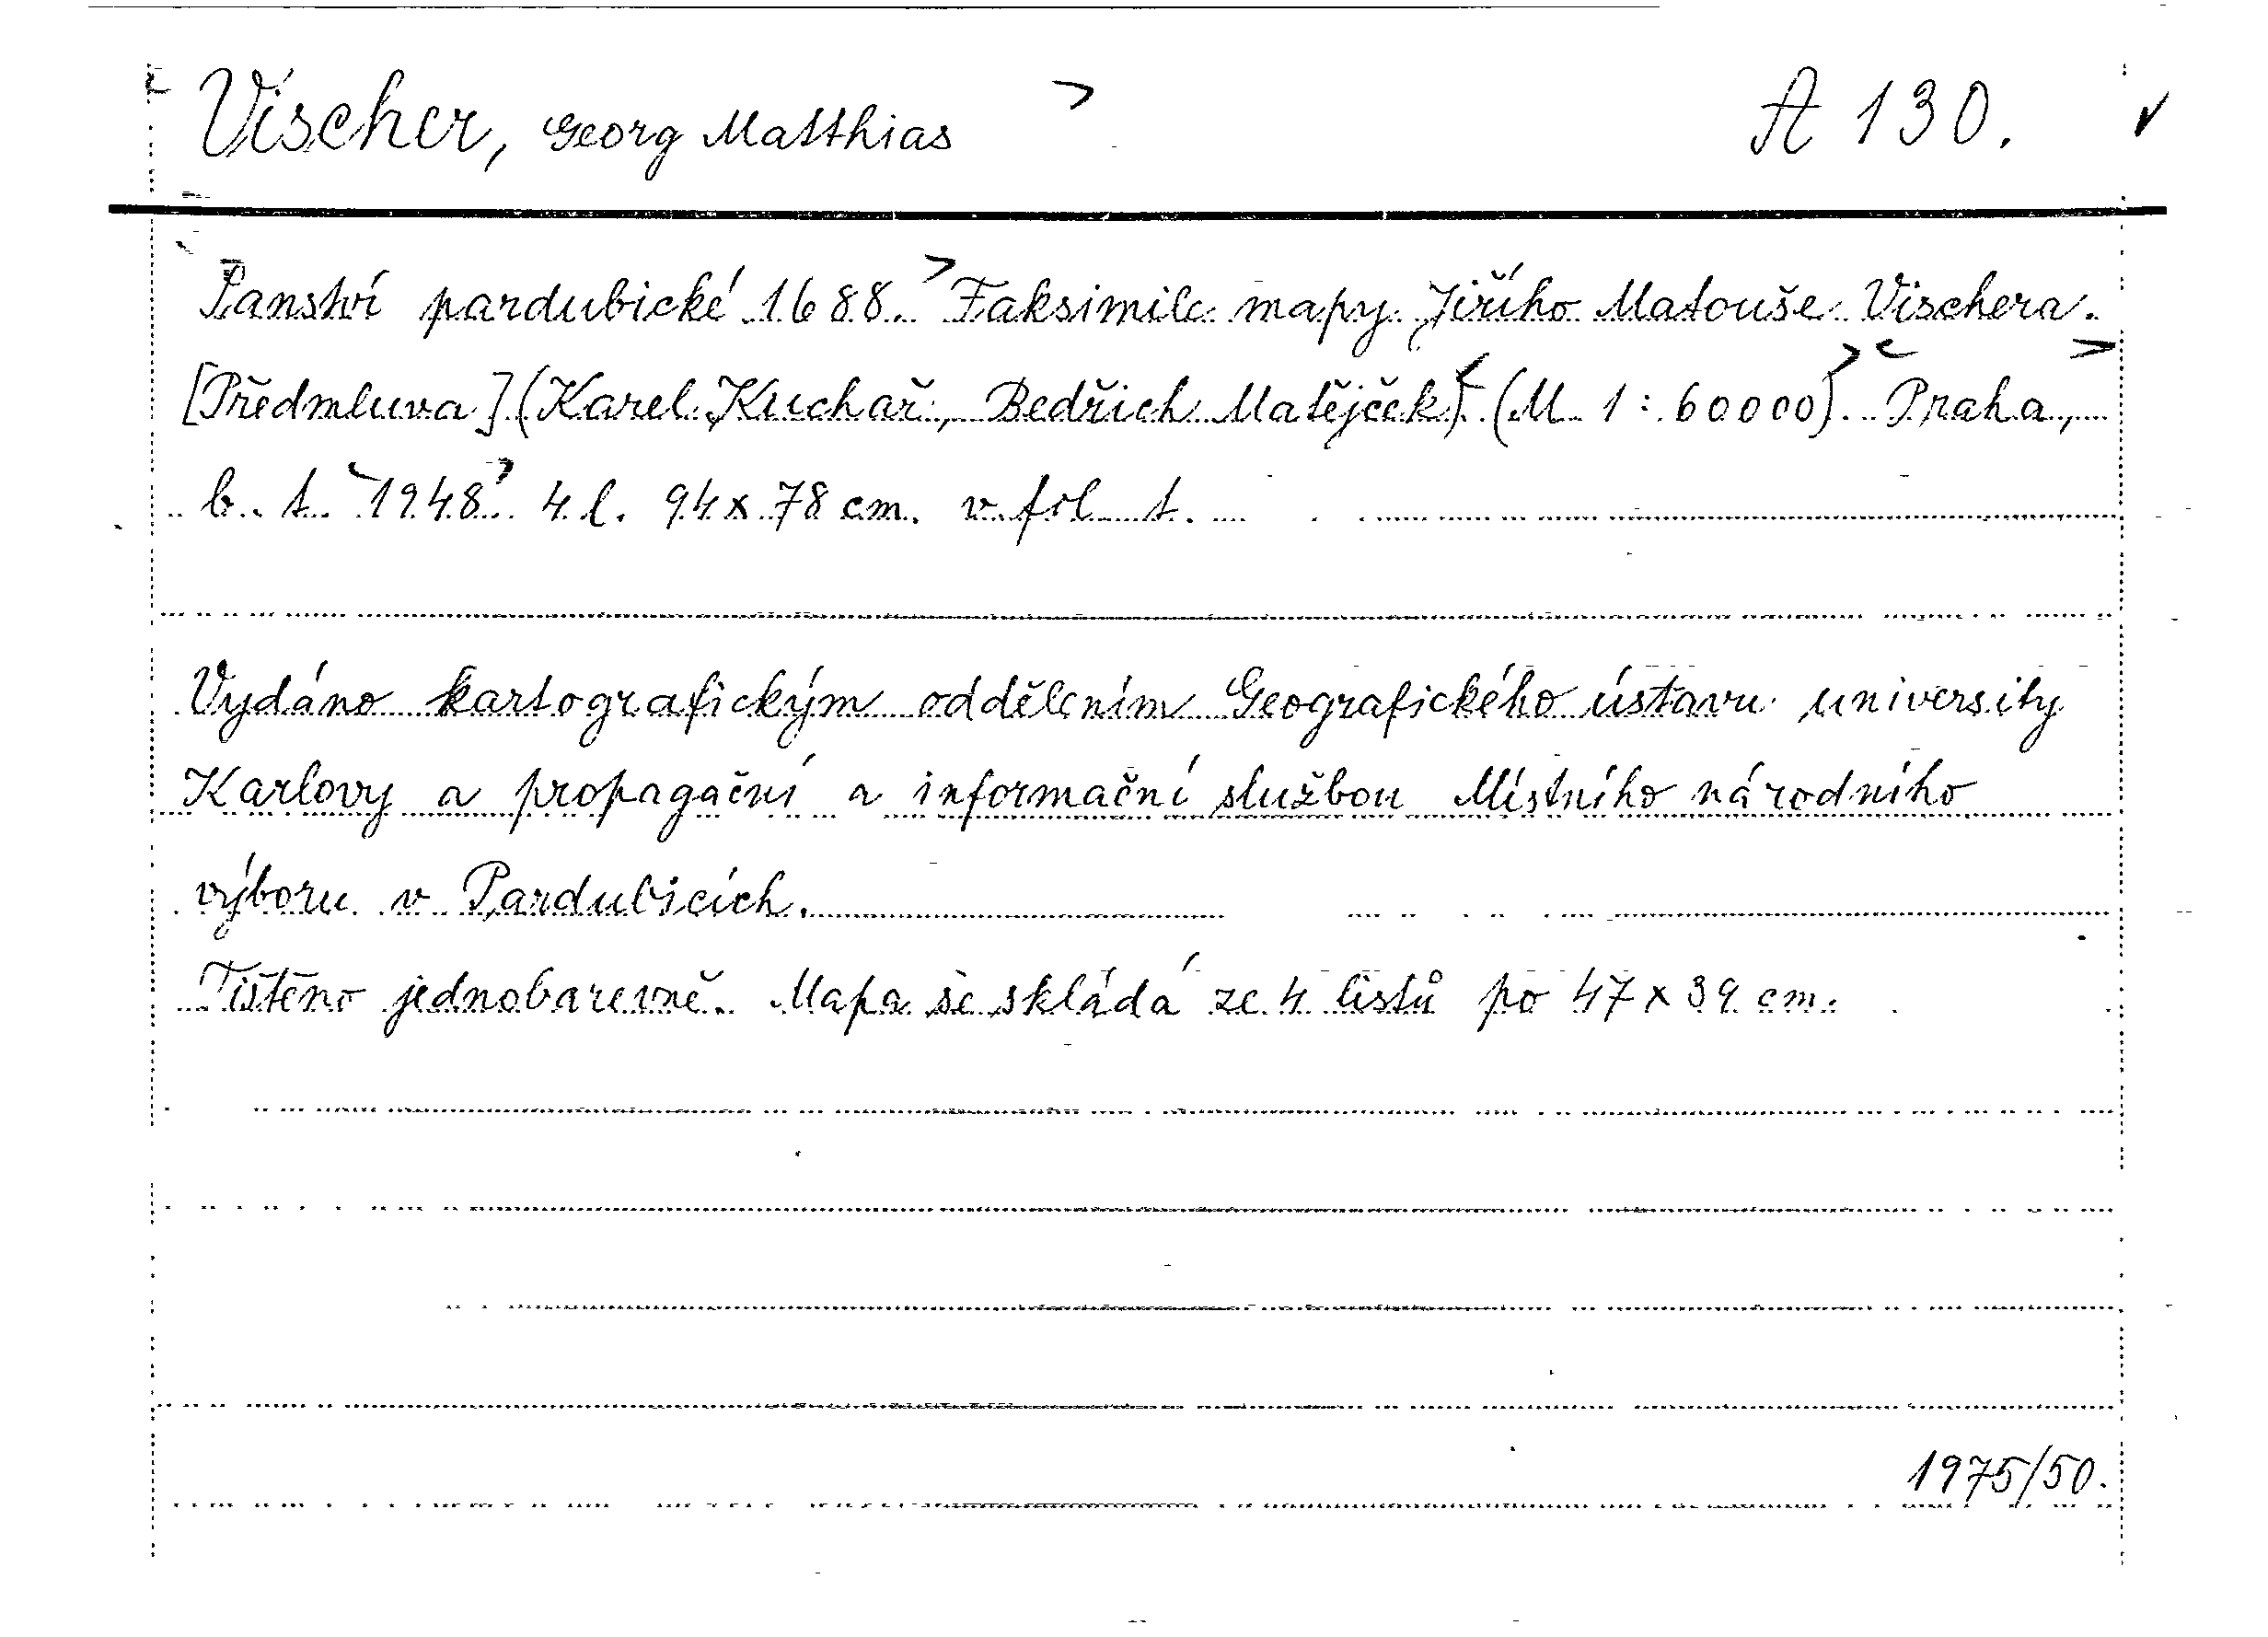 Vischer, Georg Matthias A 130.
Panství pardubické 1688. Faksimile mapy Jiřího Matouše Vischera.
[Předmluva] (Karel Kuchař, Bedřich Matějček). (M 1 : 60000). Praha,
b. t. 1948. 4 l. 94 x 78 cm. v fol t.
Vydáno kartografickým oddělením Geografického ústavu university
Karlovy a propagační a informační službou Místního národního
výboru v Pardubicích.
Tištěno jednobarevně. Mapa se skládá ze 4 listů po 47 x 39 cm.
1975/50.